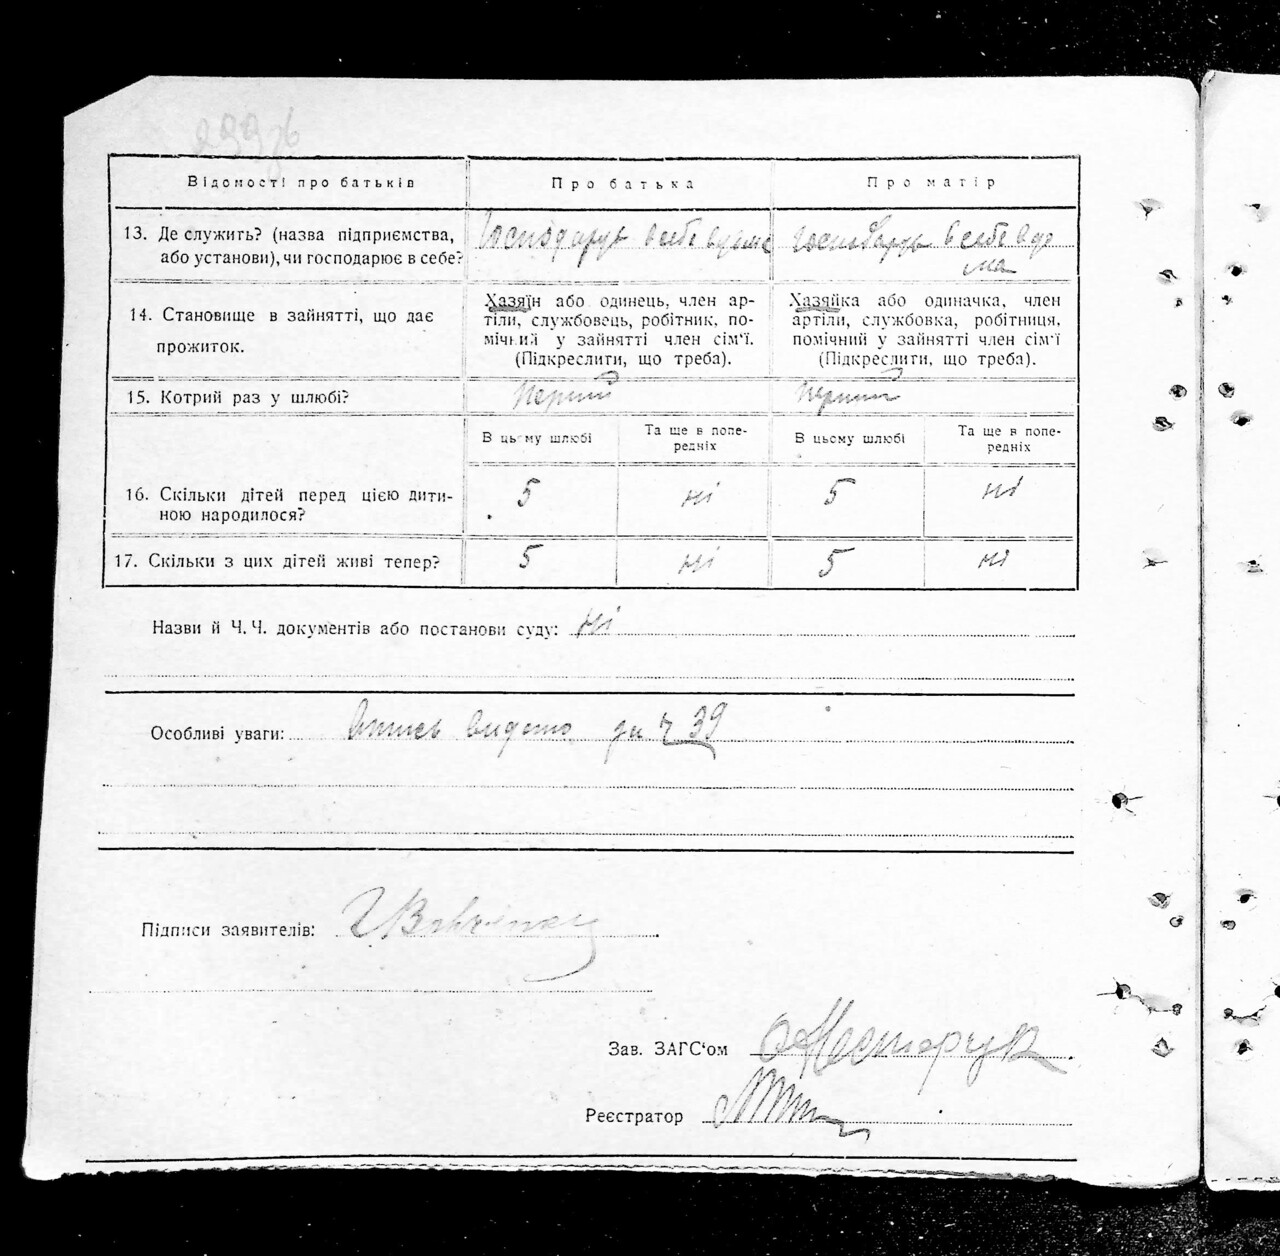 Відомості про батьків
Про батька
Про матір
13. Де служить? (назва підприємства, або установи), чи господарює в себе?
Господарує в себе вдома
Господарує в себе вдо
ма
14. Становище в зайнятті, що дає
прожиток.
Хазяїн або одинець, член ар-
тілі, службовець, робітник, по-
мічний у зайнятті член сім'ї.
(Підкреслити, що треба).
Хазяйка або одиначка, член
артілі, службовка, робітниця,
помічний у зайнятті член сім'ї
(Підкреслити, що треба).
15. Котрий раз у шлюбі?
Перший
перший
В цьому шлюбі
Та ще в попе-
редніх
В цьому шлюбі
Та ще в попе-
редніх
16. Скільки дітей перед цією дити-
ною народилося?
5
ні
5
ні
17. Скільки з цих дітей живі тепер?
5
ні
5
ні
Назви й Ч. Ч. документів або постанови суду: ні
Особливі уваги: видано 39
Підписи заявителів:
Зав. ЗАГС'ом
Реєстратор